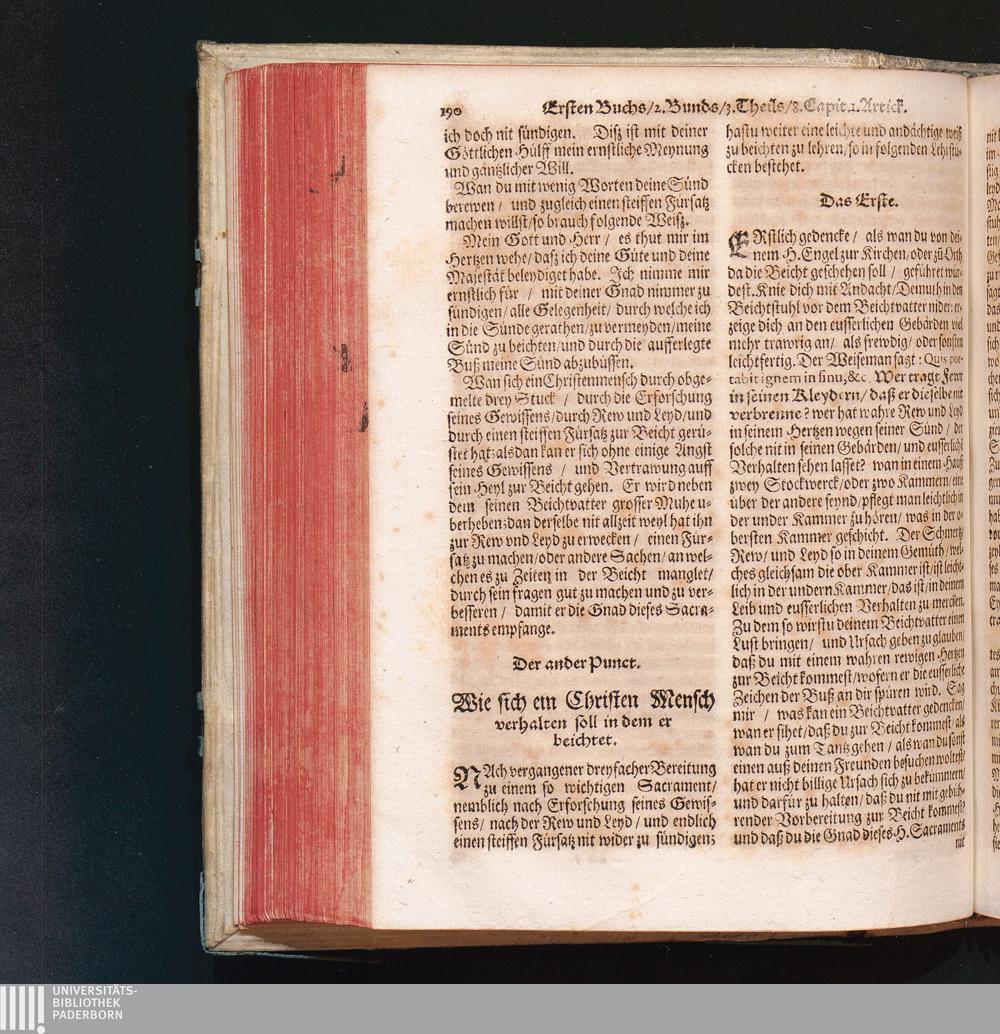 190 Ersten Buchs/2. Bunds/3. Theils/8. Capit. 1. Artick.
ich doch nit sündigen. Diß ist mit deiner
Göttlichen Hülff mein ernstliche Meynung
und gäntzlicher Will.
Wan du mit wenig Worten deine Sünd
berewen / und zugleich einen steiffen Fürsatz
machen willst/so brauch folgende Weiß.
Mein Gott und Herr / es thut mir im
Hertzen wehe/daß ich deine Güte und deine
Majestät beleydiget habe. Ich nimme mir
ernstlich für / mit deiner Gnad nimmer zu
sündigen/alle Gelegenheit/durch welche ich
in die Sünde gerathen/zu vermeyden/meine
Sünd zu beichten/und durch die aufferlegte
Buß meine Sünd abzubüssen.
Wan sich ein Christenmensch durch obge-
melte drey Stuck / durch die Erforschung
seines Gewissens/durch Rew und Leyd/und
durch einen steiffen Fürsatz zur Beicht gerü-
stet hat: alsdan kan er sich ohne einige Angst
seines Gewissens / und Vertrawung auff
sein Heyl zur Beicht gehen. Er wird neben
dem seinen Beichtvatter grosser Muhe u-
berheben: dan derselbe nit allzeit weyl hat ihn
zur Rew vnd Leyd zu erwecken / einen Für-
satz zu machen/oder andere Sachen/an wel-
chen es zu Zeiten in der Beicht manglet/
durch sein fragen gut zu machen und zu ver-
besseren / damit er die Gnad dieses Sacra-
ments empfange.
Der ander Punct.
Wie sich ein Christen Mensch
verhalten soll in dem er
beichtet.
NAch vergangener dreyfacher Bereitung
zu einem so wichtigen Sacrament/
nemblich nach Erforschung seines Gewis-
sens/ nach der Rew und Leyd / und endlich
einen steiffen Fürsatz nit wider zu sündigen:
hastu weiter eine leichte und andächtige weiß
zu beichten zu lehren/so in folgenden Lehrstü-
cken bestehet.
Das Erste.
ERstlich gedencke / als wan du von dei-
nem H. Engel zur Kirchen/oder zü Orth
da die Beicht geschehen soll / geführet wür-
dest. Knie dich mit Andacht/Demuth in den
Beichtstuhl vor dem Beichtvatter nider: er-
zeige dich an den eusserlichen Gebärden viel
mehr trawrig an/ als frewdig/ oder sonsten
leichtfertig. Der Weiseman sagt: Quis por-
tabit ignem in sinu, &c. Wer tragt Fewr
in seinen Kleydern/ daß er dieselbe nit
verbrenne? wer hat wahre Rew und Leyd
in seinem Hertzen wegen seiner Sünd / der
solche nit in seinen Gebärden/und eusserlich
Verhalten sehen lasset? wan in einem Hauß
zwey Stockwerck/oder zwo Kammern/eine
über der andere seynd/pflegt man leichtlich in
der under Kammer zu hören/ was in der o-
bersten Kammer geschicht. Der Schmertz/
Rew/ und Leyd so in deinem Gemüth/wel-
ches gleichsam die ober Kammer ist/ist leicht-
lich in der undern Kammer/das ist/in deinem
Leib und eusserlichen Verhalten zu mercken.
Zu dem so wirstu deinem Beichtvatter einen
Lust bringen/ und Ursach geben zu glauben/
daß du mit einem wahren rewigen Hertzen
zur Beicht kommest/wofern er die eusserliche
Zeichen der Buß an dir spüren wird. Sag
mir / was kan ein Beichtvatter gedencken/
wan er sihet/daß du zur Beicht kommest/als
wan du zum Tantz gehen / als wan du sonst
einen auß deinen Freunden besuchen woltest?
hat er nicht billige Ursach sich zu bekümmern/
und darfür zu halten/ daß du nit mit gebüh-
render Vorbereitung zur Beicht kommest?
und daß du die Gnad dieses H. Sacraments
nit
UNIVERSITÄTS-
BIBLIOTHEK
PADERBORN